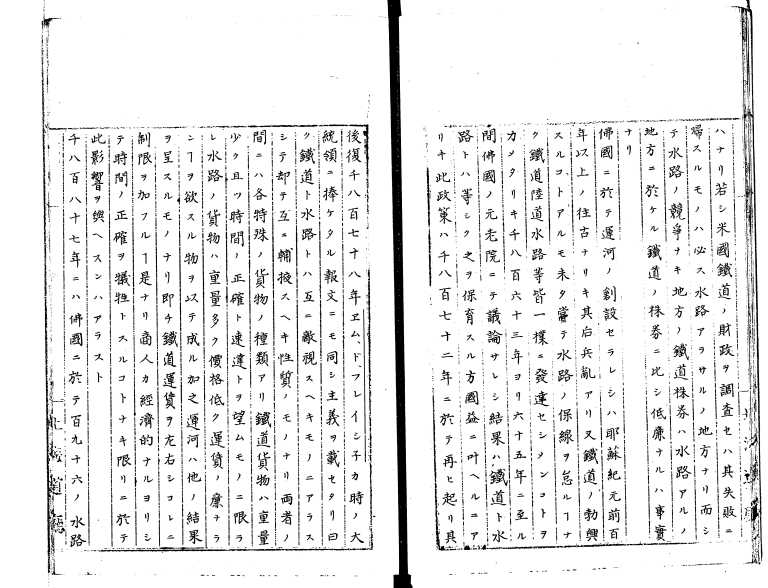 ハナリ若シ米國鐵道ノ財政ヲ調査セハ其失敗ニ
歸スルモノハ必ス水路アラサルノ地方ナリ而シ
テ水路ノ競爭ナキ地方ノ鐵道株券ハ水路アルノ
地方ニ於ケル鐵道ノ株券ニ比シ低廉ナルハ事實
ナリ
佛國ニ於テ運河ノ創設セラレシハ耶蘇紀元前百
年以上ノ往古ナリキ其后兵亂アリ又鐵道ノ勃興
スルコトアルモ未タ嘗テ水路ノ保線ヲ怠ルヿナ
ク鐵道陸道水路等皆一樣ニ發達セシメンコトヲ
カメタリキ千八百六十三年ヨリ六十五年ニ至ル
間佛國ノ元老院ニテ議論サレシ結果ハ鐵道ト水
路トハ等シク之ヲ保育スル方國益ニ叶ヘルニア
リキ此政策ハ千八百七十二年ニ於テ再ヒ起リ其
後復千八百七十八年ヱム、ドフレイシ子カ時ノ大
統領ニ捧ケタル報文ニモ同シ主義ヲ載セタリ曰
ク鐵道ト水路トハ互ニ敵視スヘキモノニアラス
シテ却テ互ニ輔援スヘキ性質ノモノナリ兩者ノ
間ニハ各特殊ノ貨物ノ種類アリ鐵道貨物ハ重量
少ク且ツ時間ノ正確ト速達トヲ望ムモノニ限ラ
レ水路ノ貨物ハ重量多ク價格低ク運賃ノ廉ナラ
ンヿヲ欲スル物ヲ以テ成ル加之運河ハ他ノ結果
ヲ呈スルモノナリ即チ鐵道運賃ヲ左右シコレニ
制限ヲ加フルヿ是ナリ商人カ經濟的ナルヨリシ
テ時間ノ正確ヲ犠牲トスルコトナキ限リニ於テ
此影響ヲ與ヘスンハアラスト
千八百八十七年ニハ佛國ニ於テ百九十六ノ水路
北海道廳